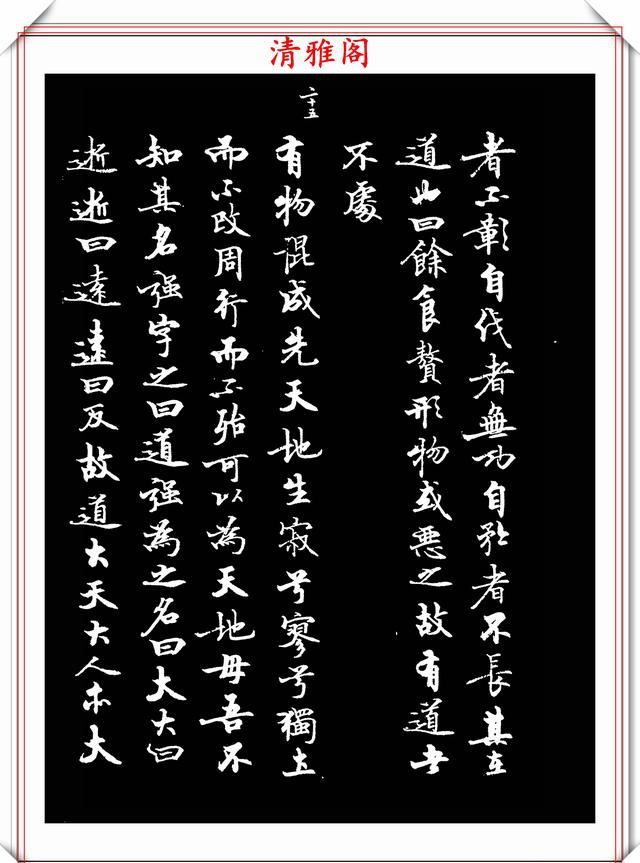 清雅阁
二十五
者不彰自伐者無功自矜者不長其在
道也曰餘食贅形物或惡之故有道者
不處
有物混成先天地生寂兮寥兮獨立
而不改周行而不殆可以為天地母吾不
知其名强字之曰道强為之名曰大大曰
逝逝曰遠遠曰反故道大天大人亦大